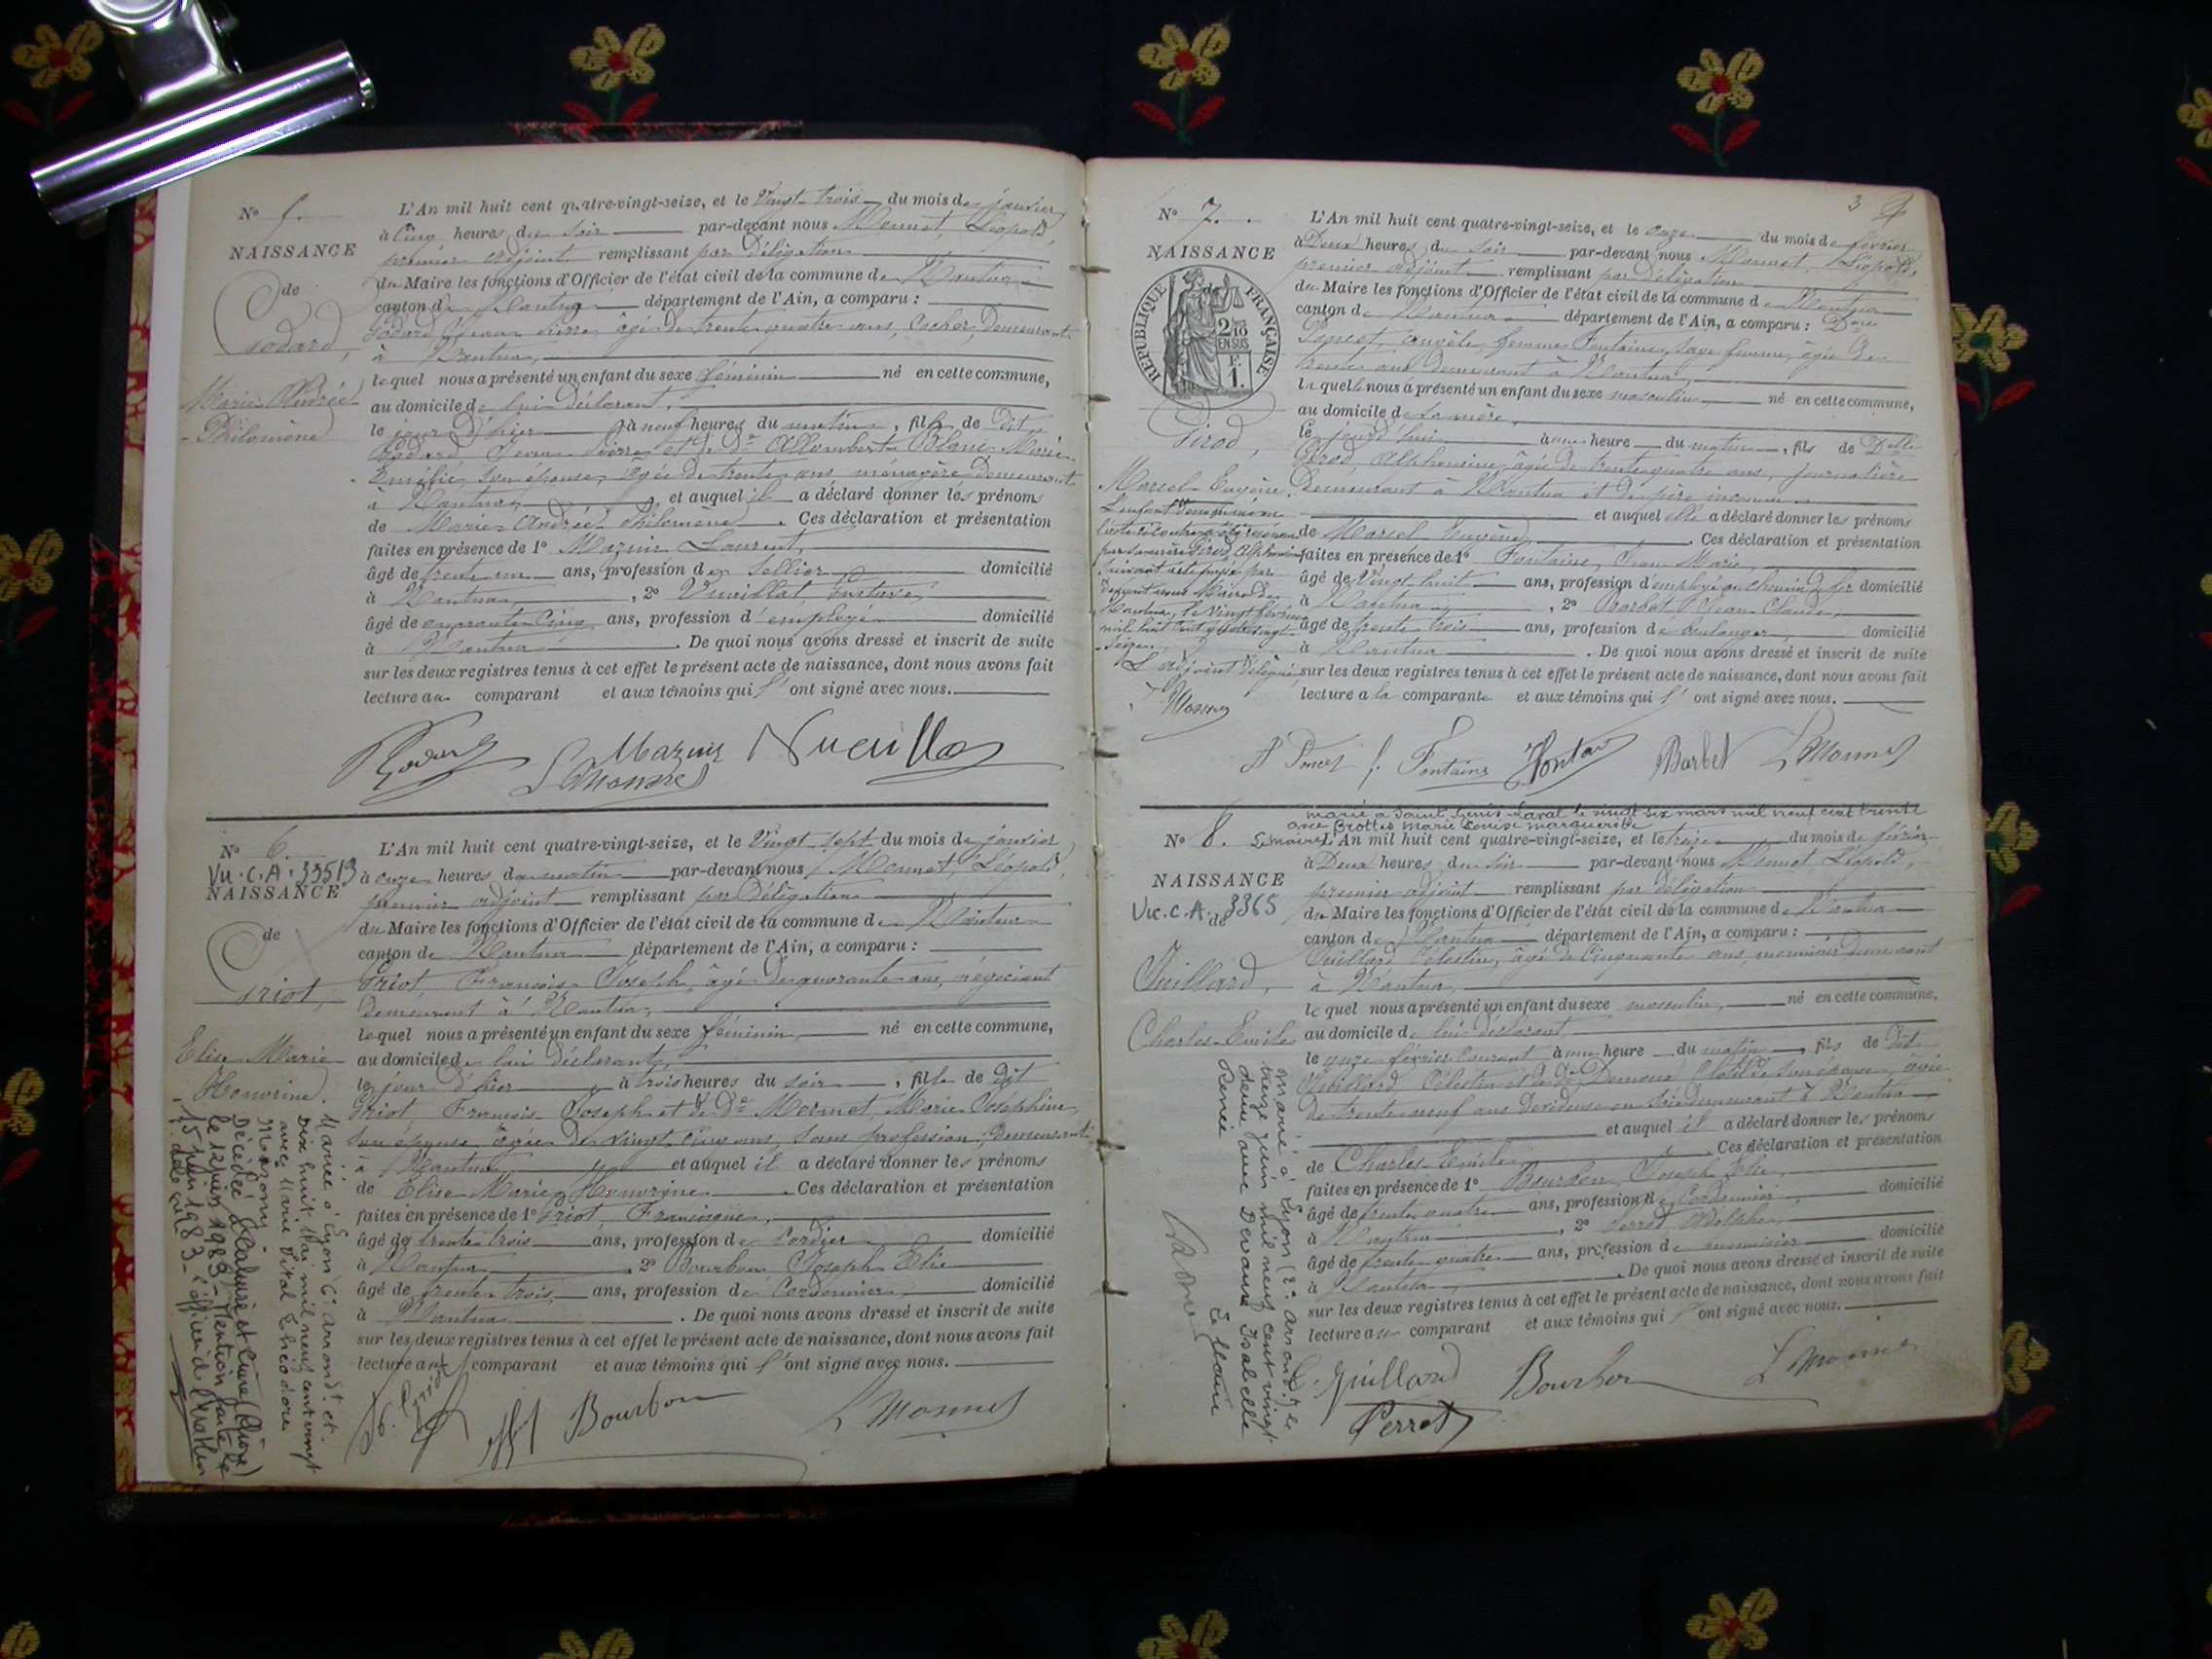 N° 5.
NAISSANCE
de
Godard,
Marie Andrée
Philomène
L'An mil huit cent quatre-vingt-seize, et le Vingt trois du mois de janvier
à Cinq heures du soir par-devant nous Monnet, Léopold,
premier adjoint remplissant par Délégation
du Maire les fonctions d'Officier de l'état civil de la commune de Nantua
canton de Nantua département de l'Ain, a comparu :
Godard Jean Pierre âgé de trente quatre ans, Cocher, Demeurant
à Nantua,
lequel nous a présenté un enfant du sexe féminin né en cette commune,
au domicile de lui déclarant,
le jour d'hier à neuf heures du matin, fille de Dit
Godard Jean Pierre et de De Allombert Blanc Marie
Emélie son épouse, âgée de trente ans ménagère demeurant
à Nantua, et auquel il a déclaré donner les prénoms
de Marie Andrée Philomène. Ces déclaration et présentation
faites en présence de 1° Mazuir Laurent,
âgé de trente un ans, profession de Sellier domicilié
à Nantua, 2° Vuaillat, Gustave,
âgé de quarante cinq ans, profession d'employé domicilié
à Nantua. De quoi nous avons dressé et inscrit de suite
sur les deux registres tenus à cet effet le présent acte de naissance, dont nous avons fait
lecture au comparant et aux témoins qui l'ont signé avec nous.
Mazuir
L Monnet
N° 6.
Vu. C. A. 33513
NAISSANCE
de
Griot,
Elise Marie
Honorine.
Mariée à Lyon 6e arrondt et
Dix huit Mai mil neuf cent vingt
avec Marie Vital Théodore
Décédée à Caluire et Cuire (Rhône)
le 12 juin 1983 - Mention faite le
15 juin 1983 - L'officier de
L'An mil huit cent quatre-vingt-seize, et le Vingt sept du mois de janvier
à onze heures du matin par-devant nous Monnet, Léopold,
premier adjoint remplissant par Délégation
du Maire les fonctions d'Officier de l'état civil de la commune de Nantua
canton de Nantua département de l'Ain, a comparu :
Griot François Joseph, âgé de quarante ans, négociant
demeurant à Nantua,
lequel nous a présenté un enfant du sexe féminin né en cette commune,
au domicile de lui déclarant,
le jour d'hier à trois heures du soir, fille de Dit
Griot, François Joseph et de De Mermet, Marie Joséphine
son épouse, âgée de vingt cinq ans, sans profession, demeurant
à Nantua et auquel il a déclaré donner les prénoms
de Elise Marie Honorine. Ces déclaration et présentation
faites en présence de 1° Griot, Francisque,
âgé de trente trois ans, profession de Cordier domicilié
à Nantua, 2° Bourbon Joseph Elie
âgé de trente trois ans, profession de Cordonnier domicilié
à Nantua. De quoi nous avons dressé et inscrit de suite
sur les deux registres tenus à cet effet le présent acte de naissance, dont nous avons fait
lecture au comparant et aux témoins qui l'ont signé avec nous.
Bourbon
L Monnet
3
N° 7.
NAISSANCE
RÉPUBLIQUE FRANÇAISE
2/10 EN SUS
F. 1.
Girod,
Marcel Eugène.
L'enfant dénommé
ci contre a été reconnu
par sa mère Girod, Alphonsine
suivant acte passé par
devant nous Maire de
Nantua, le Vingt février
mil huit cent quatre vingt
seize.
L'adjoint délégué
Monnet
L'An mil huit cent quatre-vingt-seize, et le onze du mois de février
à Deux heures du soir par-devant nous Monnet, Léopold,
premier adjoint remplissant par délégation
du Maire les fonctions d'Officier de l'état civil de la commune de Nantua
canton de Nantua département de l'Ain, a comparu : Dame
Poncet, Angèle, femme Fontaine, sage femme, âgée de
trente ans demeurant à Nantua,
laquelle nous a présenté un enfant du sexe masculin, né en cette commune,
au domicile de sa mère,
le jourd'hui à une heure du matin, fils de Delle
Girod, Alphonsine, âgée de trente quatre ans, journalière
Demeurant à Nantua et de père inconnu
et auquel elle a déclaré donner les prénoms
de Marcel Eugène. Ces déclaration et présentation
faites en présence de 1° Fontaine, Jean Marie,
âgé de Vingt huit ans, profession d'employé au chemin de fer domicilié
à Nantua, 2° Barbet, Jean Claude,
âgé de trente trois ans, profession de boulanger domicilié
à Nantua. De quoi nous avons dressé et inscrit de suite
sur les deux registres tenus à cet effet le présent acte de naissance, dont nous avons fait
lecture à la comparante et aux témoins qui l'ont signé avec nous.
A Poncet f. Fontaine Barbet L Monnet
marié à Saint Genis Laval le vingt six mars mil neuf cent trente
avec Brottes Marie Louise Marguerite
N° 8.
NAISSANCE
Vu. C. A. 3365
de
Juillard,
Charles-Emile
marié à Lyon (2e arrondt) le
treize juin mil neuf cent vingt
deux avec Devaux Isabelle
Renée
Le Maire
L'An mil huit cent quatre-vingt-seize, et le treize du mois de février
à Deux heures du soir par-devant nous Monnet, Léopold,
premier adjoint remplissant par délégation
du Maire les fonctions d'Officier de l'état civil de la commune de Nantua
canton de Nantua département de l'Ain, a comparu :
Juillard Célestin, âgé de Cinquante ans, menuisier, demeurant
à Nantua,
lequel nous a présenté un enfant du sexe masculin, né en cette commune,
au domicile de lui déclarant
le onze février courant à une heure du matin, fils de Dit
Juillard Célestin et de De Clotilde son épouse, âgée
de trente neuf ans demeurant à Nantua
et auquel il a déclaré donner les prénoms
de Charles-Emile. Ces déclaration et présentation
faites en présence de 1° Bourbon, Joseph Elie,
âgé de trente quatre ans, profession de Cordonnier domicilié
à Nantua, 2° Perret, Adolphe,
âgé de trente quatre ans, profession de menuisier domicilié
à Nantua. De quoi nous avons dressé et inscrit de suite
sur les deux registres tenus à cet effet le présent acte de naissance, dont nous avons fait
lecture au comparant et aux témoins qui l'ont signé avec nous.
C. Juillard Bourbon L Monnet
Perret